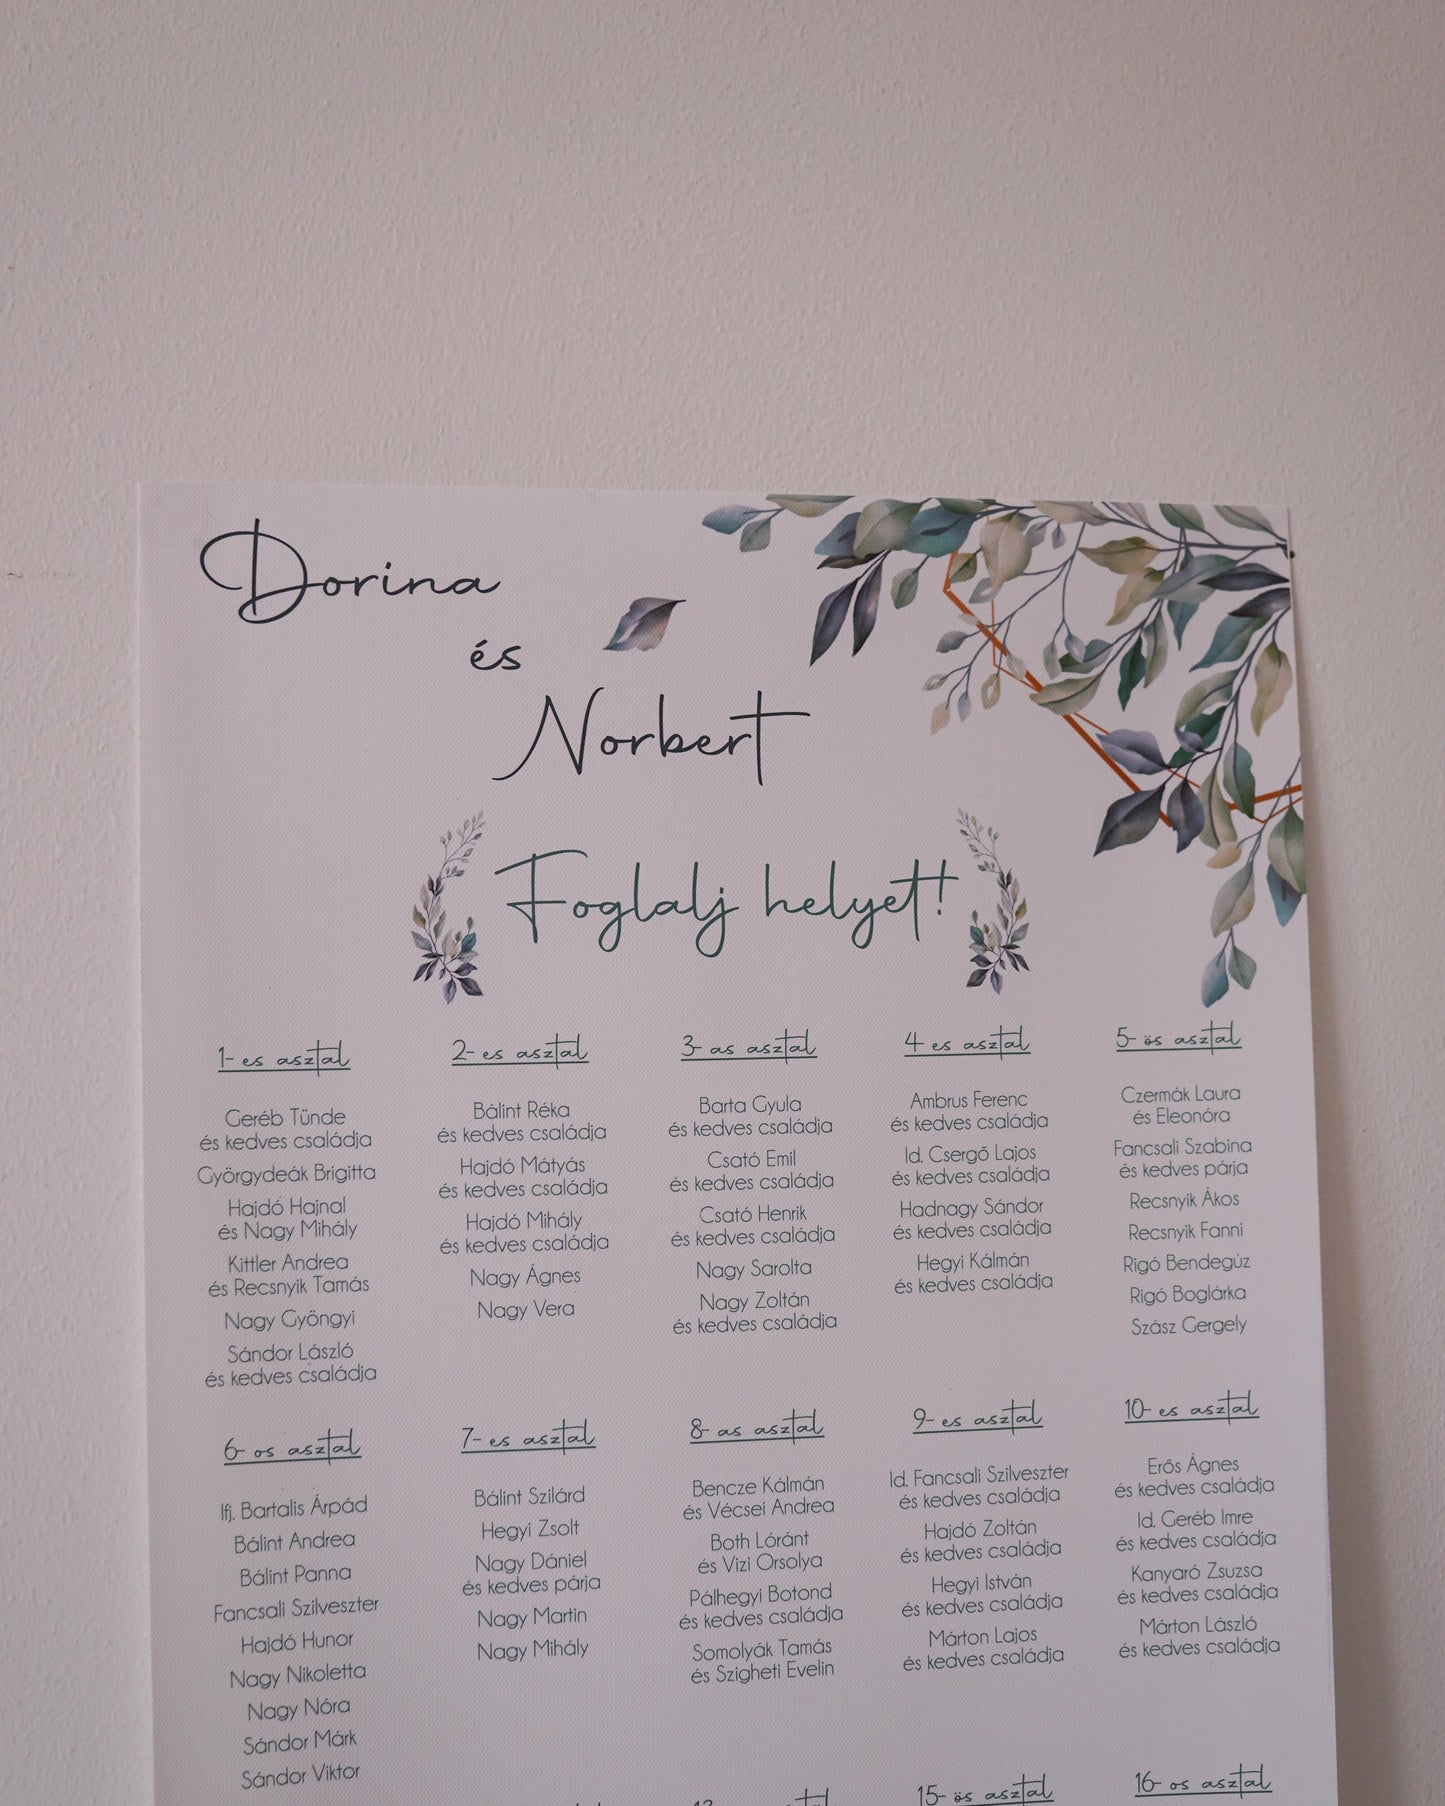 Dorina
és
Norbert
Foglalj helyet!
1-es asztal
Geréb Tünde
és kedves családja
Györgydeák Brigitta
Hajdó Hajnal
és Nagy Mihály
Kittler Andrea
és Recsnyik Tamás
Nagy Gyöngyi
Sándor László
és kedves családja
2-es asztal
Bálint Réka
és kedves családja
Hajdó Mátyás
és kedves családja
Hajdó Mihály
és kedves családja
Nagy Ágnes
Nagy Vera
3-as asztal
Barta Gyula
és kedves családja
Csató Emil
és kedves családja
Csató Henrik
és kedves családja
Nagy Sarolta
Nagy Zoltán
és kedves családja
4-es asztal
Ambrus Ferenc
és kedves családja
Id. Csergő Lajos
és kedves családja
Hadnagy Sándor
és kedves családja
Hegyi Kálmán
és kedves családja
5-ös asztal
Czermák Laura
és Eleonóra
Fancsali Szabina
és kedves párja
Recsnyik Ákos
Recsnyik Fanni
Rigó Bendegúz
Rigó Boglárka
Szász Gergely
6-os asztal
Ifj. Bartalis Árpád
Bálint Andrea
Bálint Panna
Fancsali Szilveszter
Hajdó Hunor
Nagy Nikoletta
Nagy Nóra
Sándor Márk
Sándor Viktor
7-es asztal
Bálint Szilárd
Hegyi Zsolt
Nagy Dániel
és kedves párja
Nagy Martin
Nagy Mihály
8-as asztal
Bencze Kálmán
és Vécsei Andrea
Both Lóránt
és Vizi Orsolya
Pálhegyi Botond
és kedves családja
Somolyák Tamás
és Szigheti Evelin
9-es asztal
Id. Fancsali Szilveszter
és kedves családja
Hajdó Zoltán
és kedves családja
Hegyi István
és kedves családja
Márton Lajos
és kedves családja
10-es asztal
Erős Ágnes
és kedves családja
Id. Geréb Imre
és kedves családja
Kanyaró Zsuzsa
és kedves családja
Márton László
és kedves családja
15-ös asztal
16-os asztal